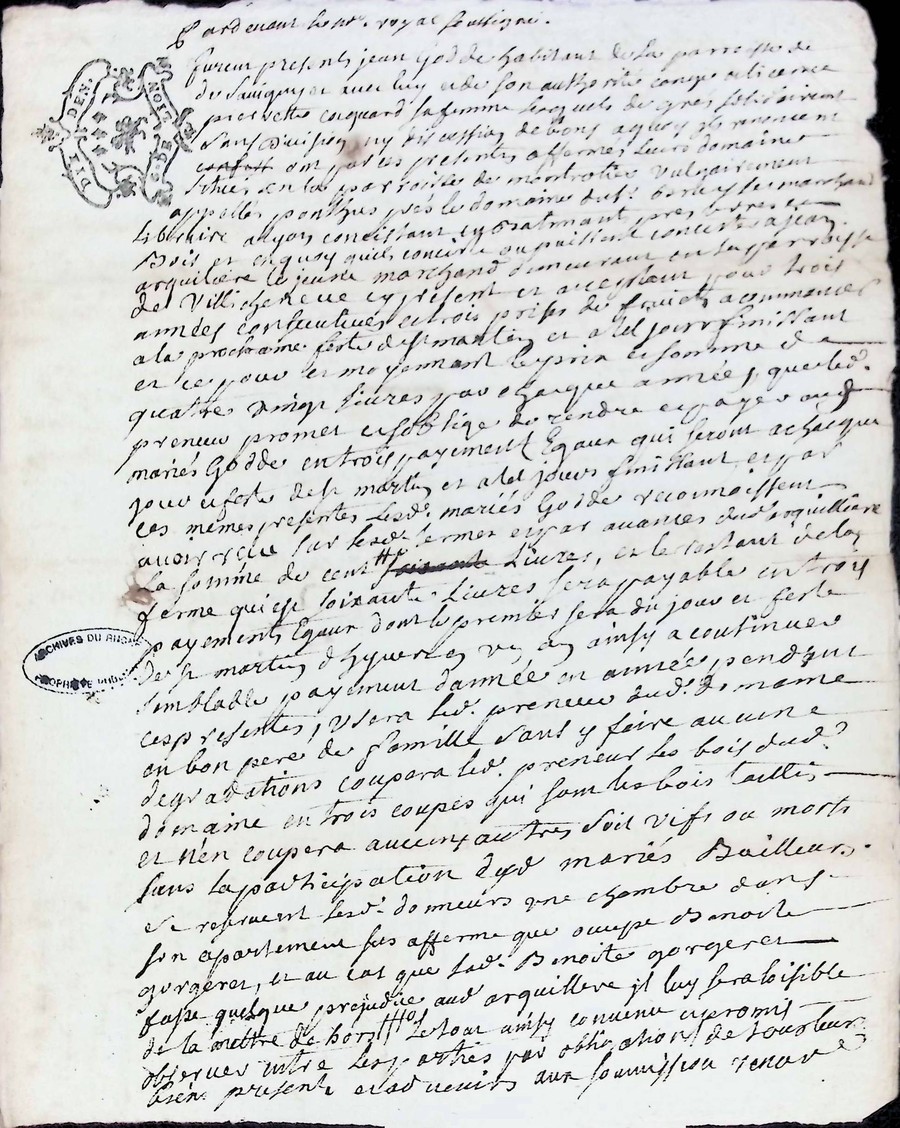 Pardevant le nore. royal soussigné.
furent presents jean Godde habitant de la parroisse de
de Savigny et avec luy et de son authorité congé et licence
pierrette coquard sa femme lesquels de grés solidairement
sans division ny discussion de bons a quoy ils renoncent
ont par ces presentes affermé leurs domaine
situés en la parroisse de montrotier vulgairement
appellés ponthus près le domaine du sr.
Libraire a lyon concistant en batimant, pres terres et
Bois et en quoy quils concine ou puissent concister a jean
arquiliere le jeune marchand demeurant en la parroisse
de Villecheneve cy present et acceptant pour trois
années consecutives et trois prises de fruicts a commancer
a la prochaine feste de st martin et a tel jour finissant
et ce pour et moyennant le prix et somme de
quatre vingt livres par chacque année, que led.
preneur promet et soblige de rendre et payer aud
mariés Godde en trois payement Egaux qui seront a chacque
jour et feste de st martin et a tel jours finissant, et par
ces mêmes presentes lesd. mariés Godde reconnoissent
avoir reçu sur lesd. fermes et par avances dud arquilliere
la somme de cent Livres, et le restant de la
ferme qui est soixante Livres sera payable en trois
payements Egaux dont le premier sera du jour et feste
de st martin dhyver en un an ainsy a continuer
semblable payement dannée en année pendant
ces presentes, Usera led. preneur dud. Domaine
en bon pere de famille sans y faire aucune
degradations coupera led. preneur les bois dud.
domaine en trois coupes qui sont les bois taillis
et n'en coupera aucunx autres soit vifs ou morts
sans la participation desd mariés Bailleurs.
se reservent lesd. donneurs une chambre dans
son apartement sus affermé que occupe Benoite
gorgeret, et au cas que lad. Benoite gorgeret
fasse quelque prejudice aud arquillere jl luy sera loisible
de la mettre de hors le tout ainsy convenu et promis
observer entre les parties par obligations de tous leur
biens presents et advenirs aux soumission renon e
ARCHIVES DU RHONE
DE LION